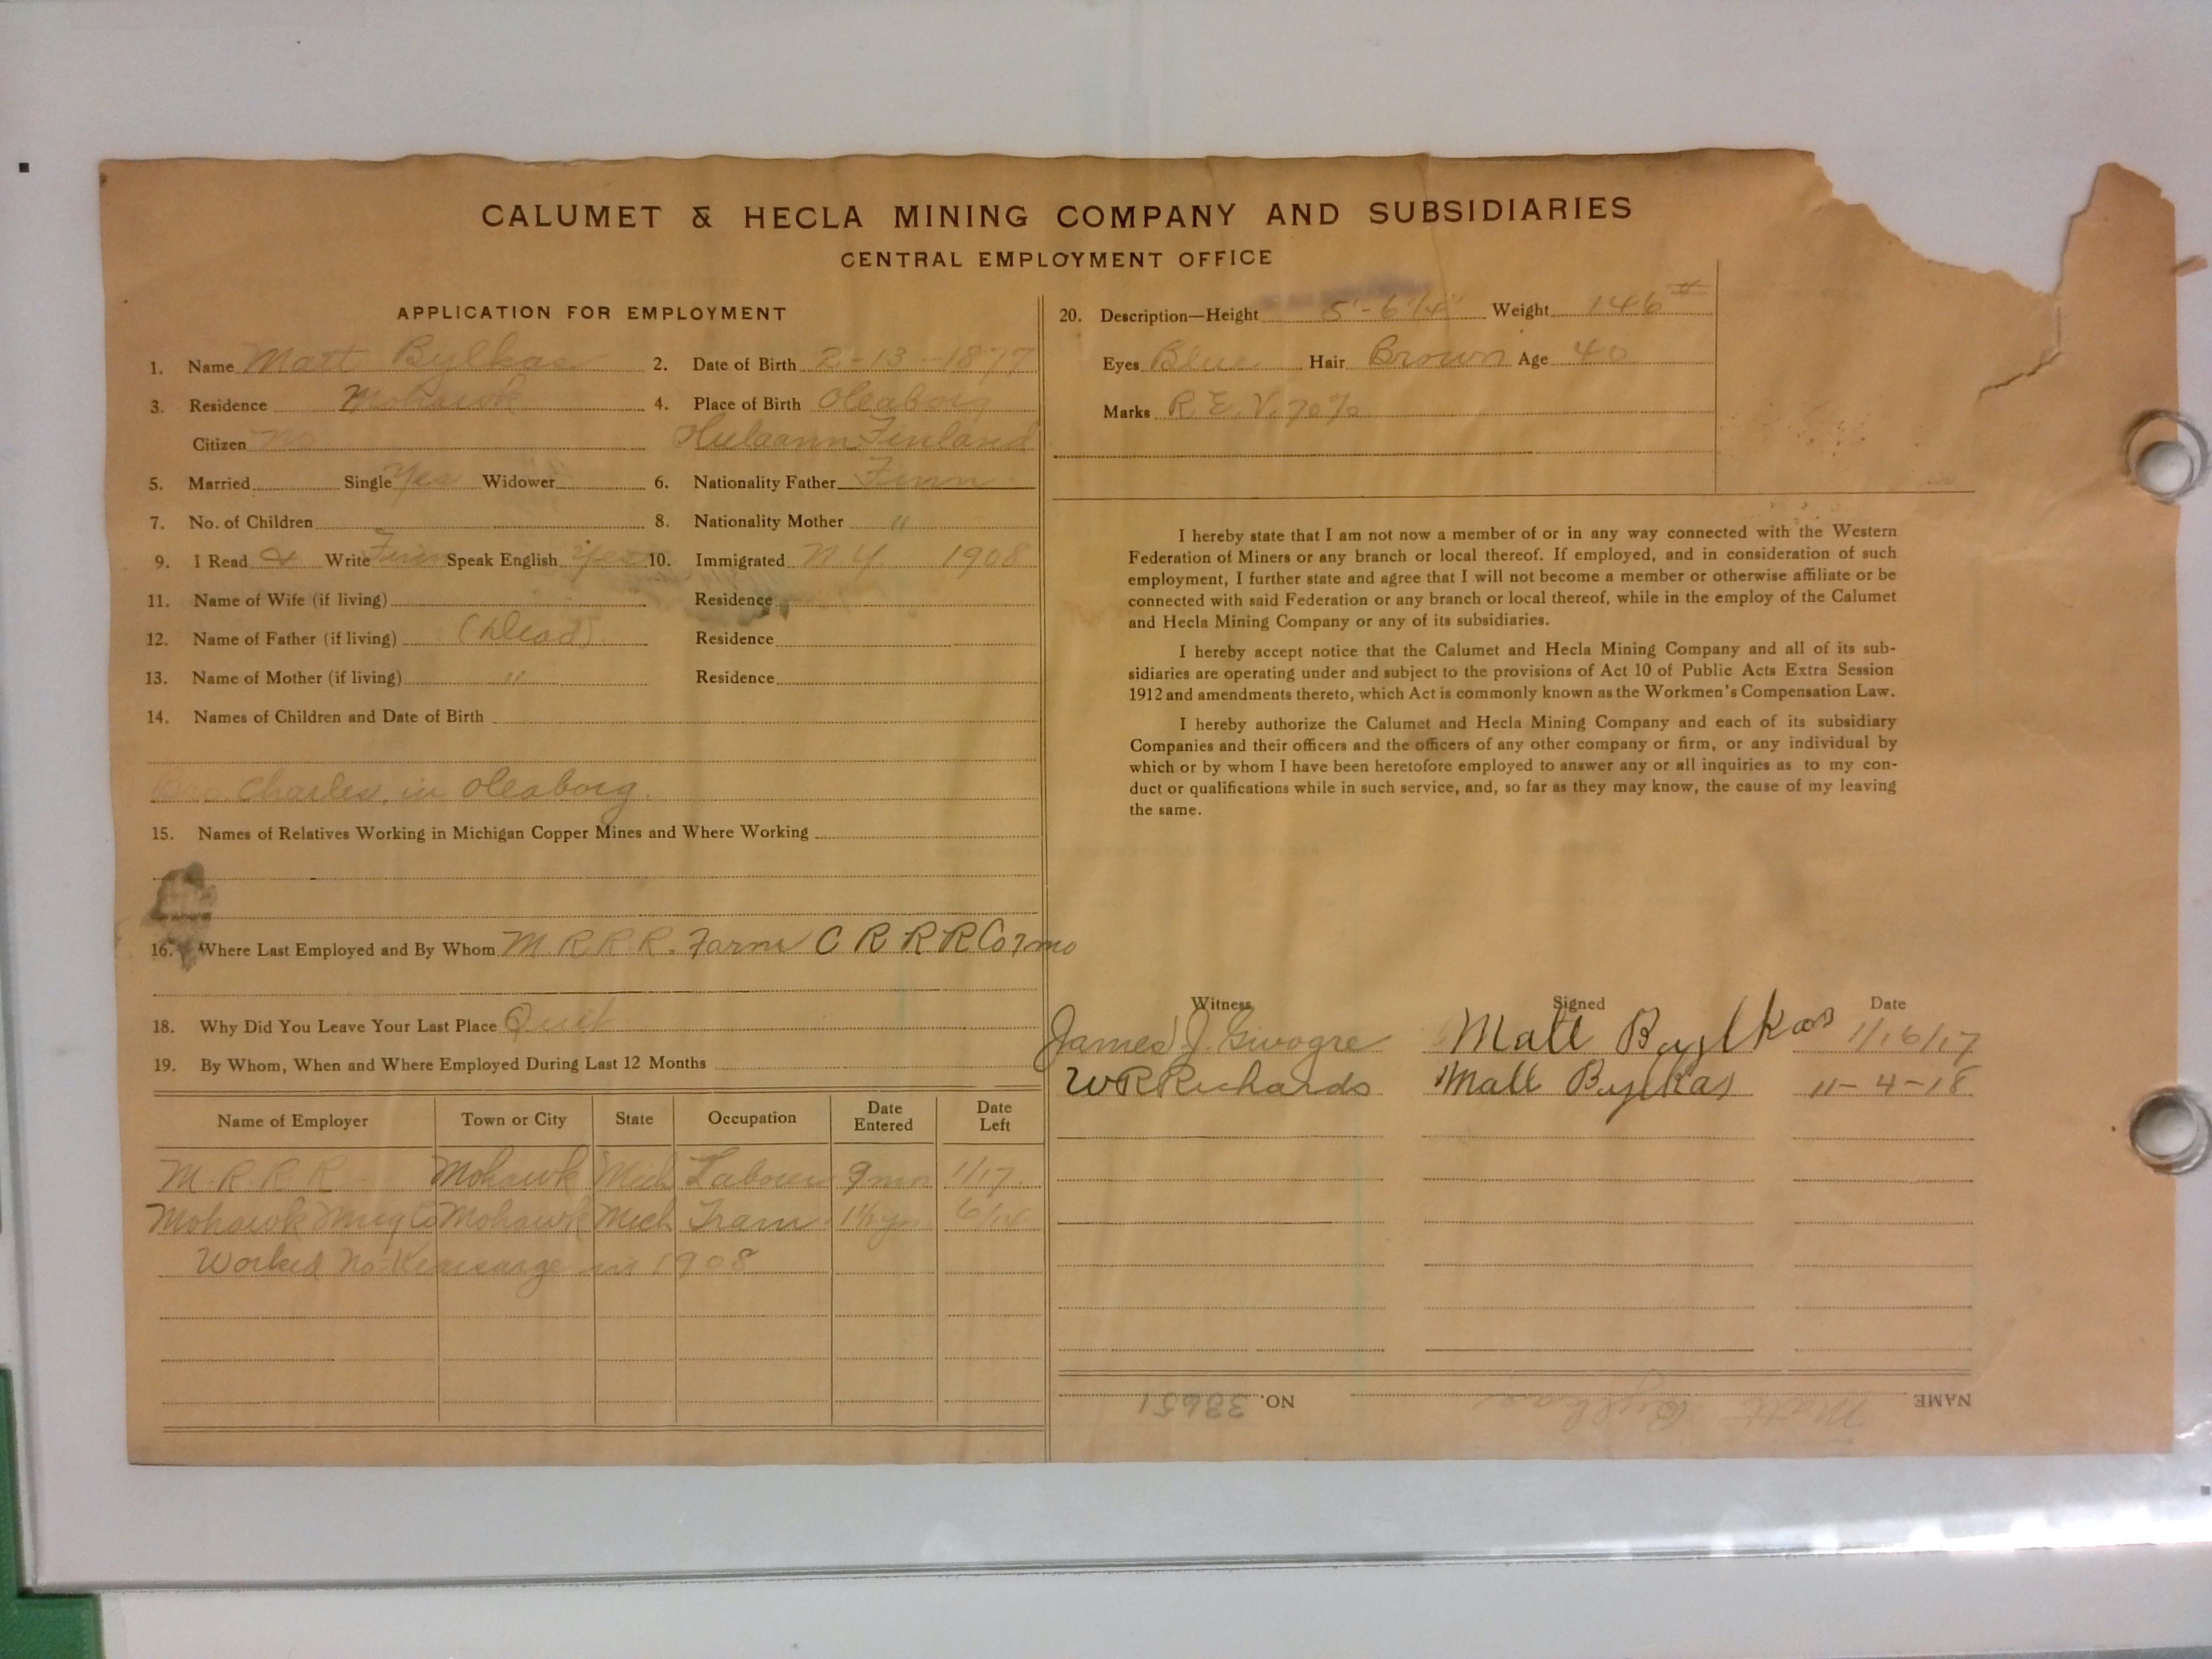 CALUMET & HECLA MINING COMPANY AND SUBSIDIARIES
CENTRAL EMPLOYMENT OFFICE
APPLICATION FOR EMPLOYMENT
1. Name Matt Bylkas 2. Date of Birth 2-13-1877
3. Residence Mohawk 4. Place of Birth Oleaborg
Citizen No Finland
5. Married Single Yes Widower 6. Nationality Father Finn
7. No. of Children 8. Nationality Mother "
9. I Read & Write Finn Speak English Yes 10. Immigrated N Y 1908
11. Name of Wife (if living) Residence
12. Name of Father (if living) (Dead) Residence
13. Name of Mother (if living) " Residence
14. Names of Children and Date of Birth
Bro Charles, in Oleaborg.
15. Names of Relatives Working in Michigan Copper Mines and Where Working
16. Where Last Employed and By Whom M. R R R. Farm C R R R Co 7 mo
18. Why Did You Leave Your Last Place Quit
19. By Whom, When and Where Employed During Last 12 Months
Name of Employer Town or City State Occupation Date Entered Date Left
M. R. R R Mohawk Mich Labour 9 mn 1/17
Mohawk Mng Co Mohawk Mich Tram 1½ yr
Worked No. Kearsarge in 1908
20. Description—Height 5'-6¼" Weight 146#
Eyes Blue Hair Brown Age 40
Marks R. E. V. 70%
I hereby state that I am not now a member of or in any way connected with the Western
Federation of Miners or any branch or local thereof. If employed, and in consideration of such
employment, I further state and agree that I will not become a member or otherwise affiliate or be
connected with said Federation or any branch or local thereof, while in the employ of the Calumet
and Hecla Mining Company or any of its subsidiaries.
I hereby accept notice that the Calumet and Hecla Mining Company and all of its sub-
sidiaries are operating under and subject to the provisions of Act 10 of Public Acts Extra Session
1912 and amendments thereto, which Act is commonly known as the Workmen's Compensation Law.
I hereby authorize the Calumet and Hecla Mining Company and each of its subsidiary
Companies and their officers and the officers of any other company or firm, or any individual by
which or by whom I have been heretofore employed to answer any or all inquiries as to my con-
duct or qualifications while in such service, and, so far as they may know, the cause of my leaving
the same.
Witness Signed Date
James J. Matt Bylkas 1/16/17
W R Richards Matt Bylkas 11-4-18
NAME Matt Bylkas NO. 38651